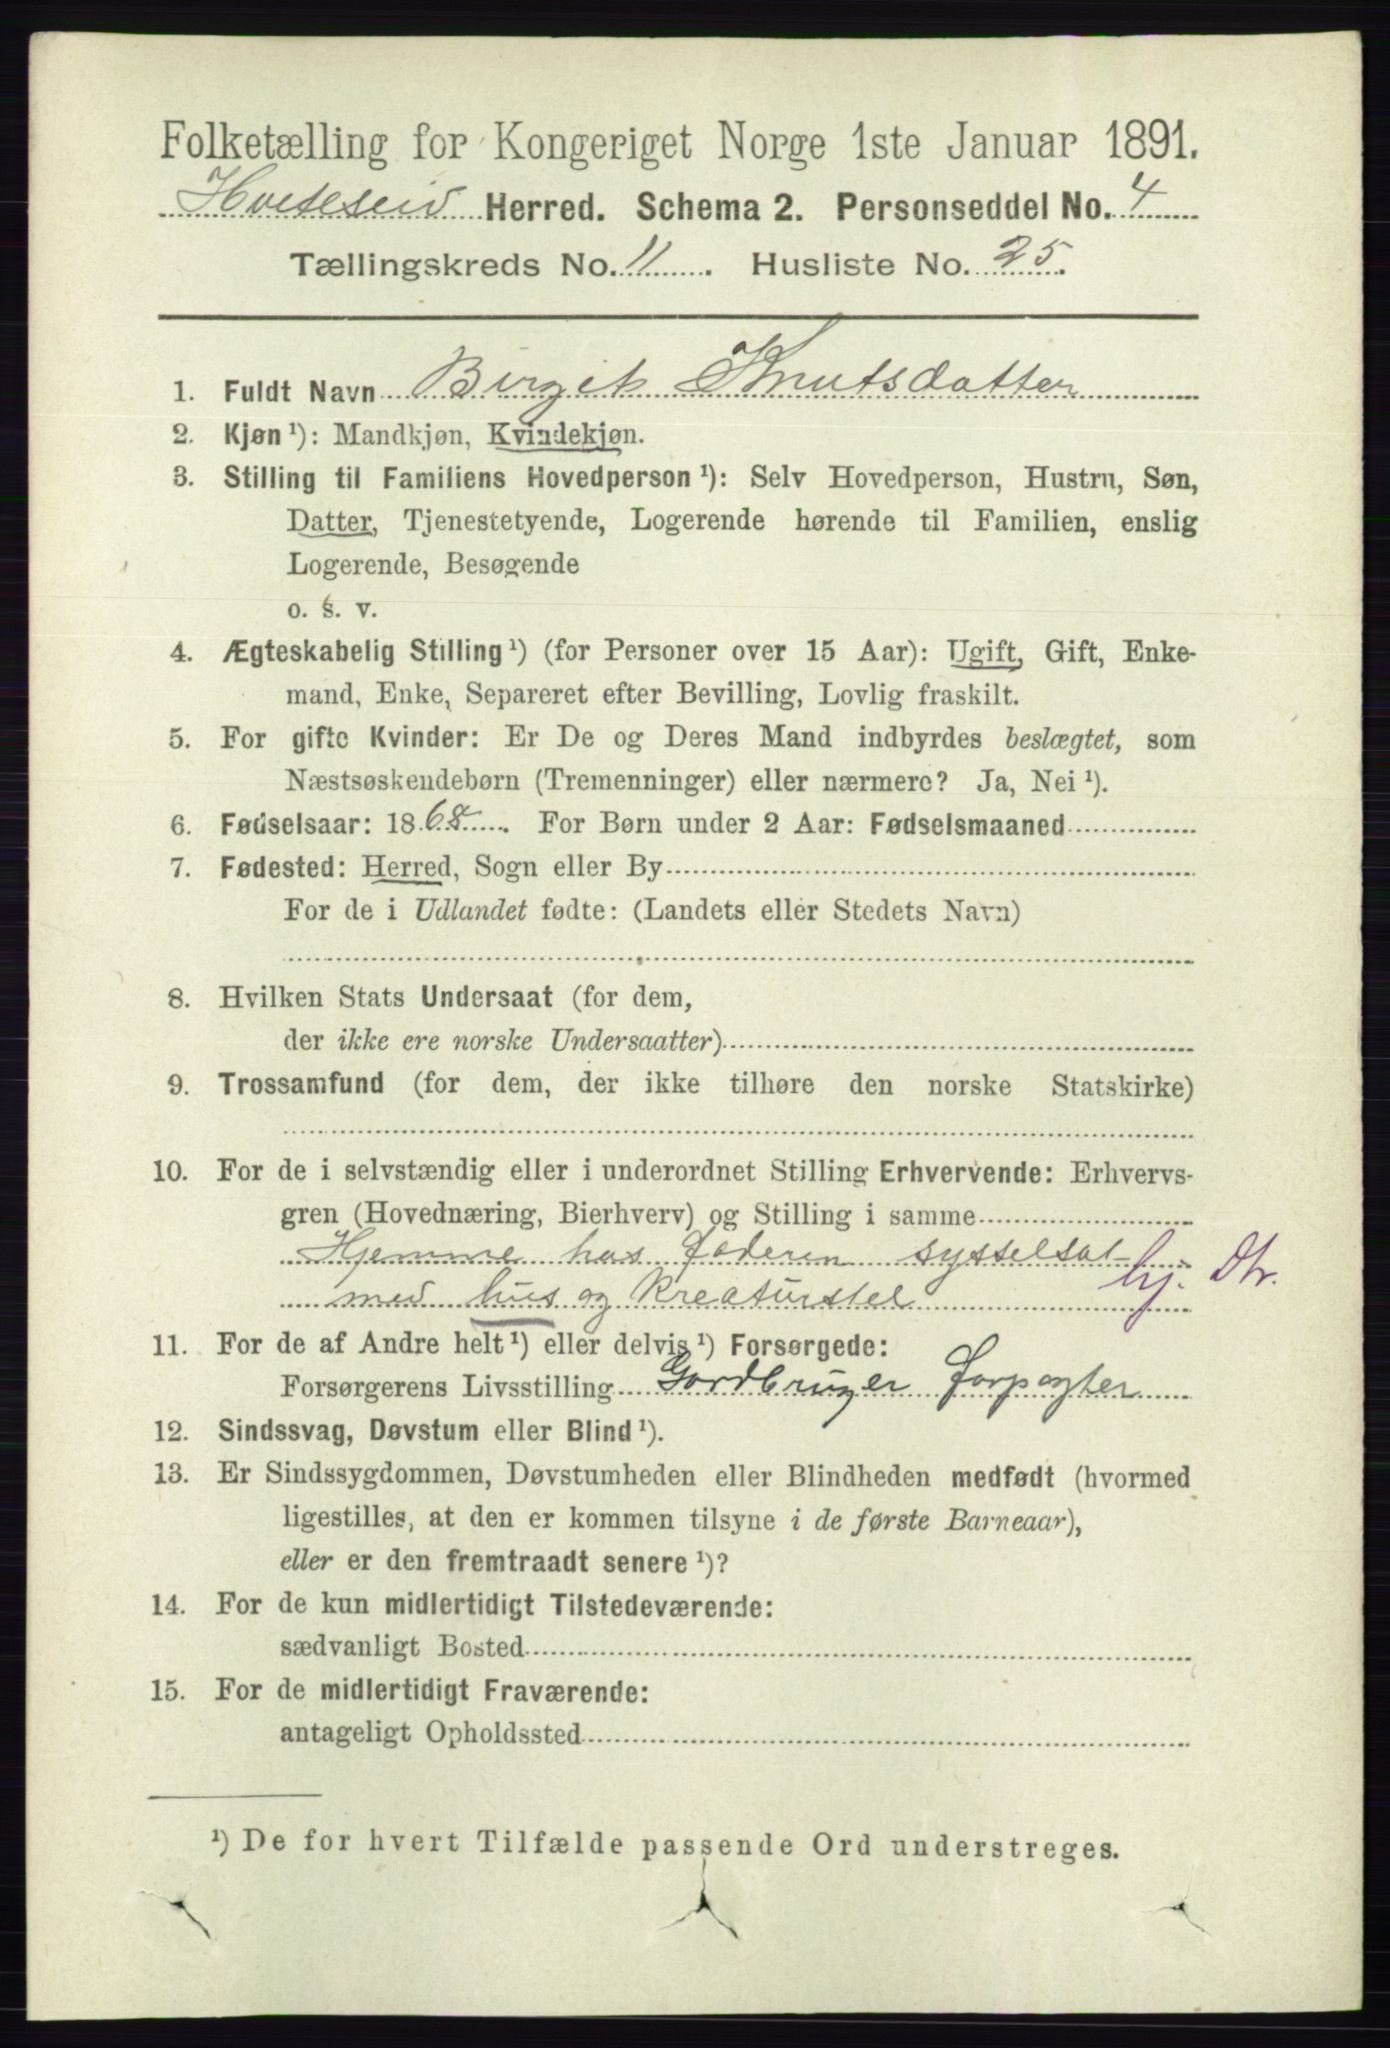 Folketælling for Kongeriget Norge 1ste Januar 1891.
Hviteseid Herred. Schema 2. Personseddel No. 4
Tællingskreds No. 11. Husliste No. 25.
1. Fuldt Navn Birgit Knutsdatter
2. Kjøn ¹): Mandkjøn, Kvindekjøn.
3. Stilling til Familiens Hovedperson ¹): Selv Hovedperson, Hustru, Søn,
Datter, Tjenestetyende, Logerende hørende til Familien, enslig
Logerende, Besøgende
o. s. v.
4. Ægteskabelig Stilling ¹) (for Personer over 15 Aar): Ugift, Gift, Enke-
mand, Enke, Separeret efter Bevilling, Lovlig fraskilt.
5. For gifte Kvinder: Er De og Deres Mand indbyrdes beslægtet, som
Næstsøskendebørn (Tremenninger) eller nærmere? Ja, Nei ¹).
6. Fødselsaar: 1868. For Børn under 2 Aar: Fødselsmaaned
7. Fødested: Herred, Sogn eller By
For de i Udlandet fødte: (Landets eller Stedets Navn)
8. Hvilken Stats Undersaat (for dem,
der ikke ere norske Undersaatter)
9. Trossamfund (for dem, der ikke tilhøre den norske Statskirke)
10. For de i selvstændig eller i underordnet Stilling Erhvervende: Erhvervs-
gren (Hovednæring, Bierhverv) og Stilling i samme
Hjemme hos faderen sysselsat
med hus og Kreaturstel hj. Dtr.
11. For de af Andre helt ¹) eller delvis ¹) Forsørgede:
Forsørgerens Livsstilling Gardbruger forpagter
12. Sindssvag, Døvstum eller Blind ¹).
13. Er Sindssygdommen, Døvstumheden eller Blindheden medfødt (hvormed
ligestilles, at den er kommen tilsyne i de første Barneaar),
eller er den fremtraadt senere ¹)?
14. For de kun midlertidigt Tilstedeværende:
sædvanligt Bosted
15. For de midlertidigt Fraværende:
antageligt Opholdssted
¹) De for hvert Tilfælde passende Ord understreges.